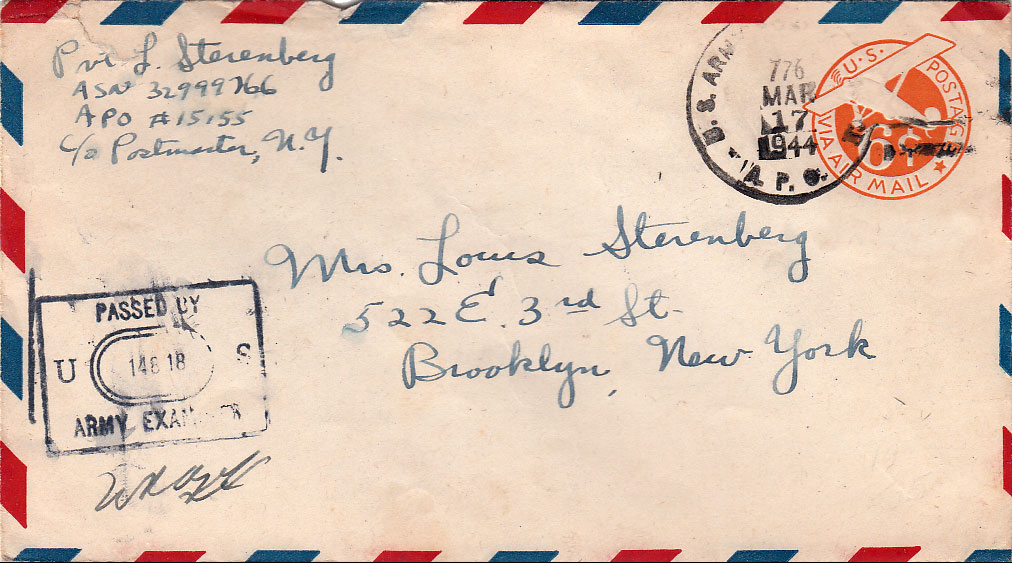 Pvt L. Sterenberg
ASN 32999766
APO #15155
c/o Postmaster, N.Y.
U.S. ARM
776
MAR
17
1944
A. P. O.
U.S. POSTAGE
6¢
VIA AIR MAIL
Mrs. Louis Sterenberg
522 E. 3rd St.
Brooklyn, New York
PASSED BY
U 14818 S
ARMY EXAMINER